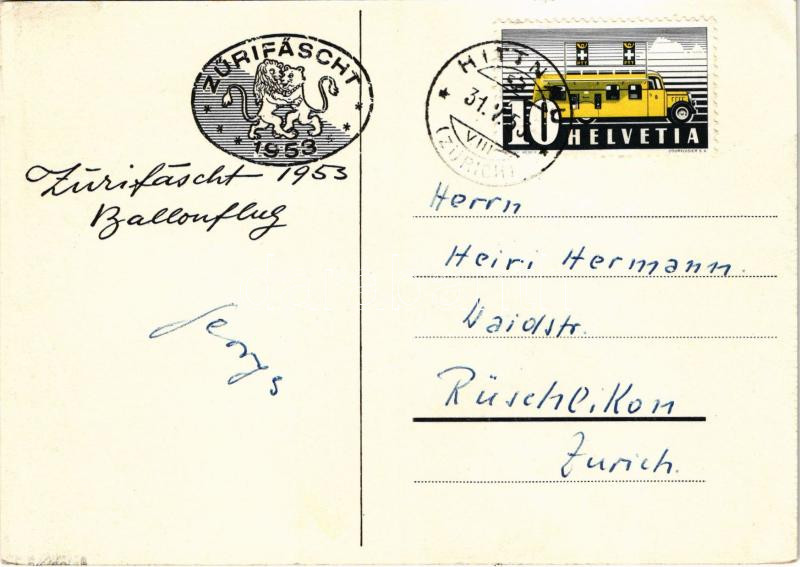 ZÜRIFÄSCHT
1953
Zürifäscht 1953
Ballonflug
HITTNAU
31.V.53
VIII
(ZÜRICH)
10 HELVETIA
COURVOISIER S.A.
Herrn
Heiri Hermann.
Waidstr.
Rüschlikon
Zürich.